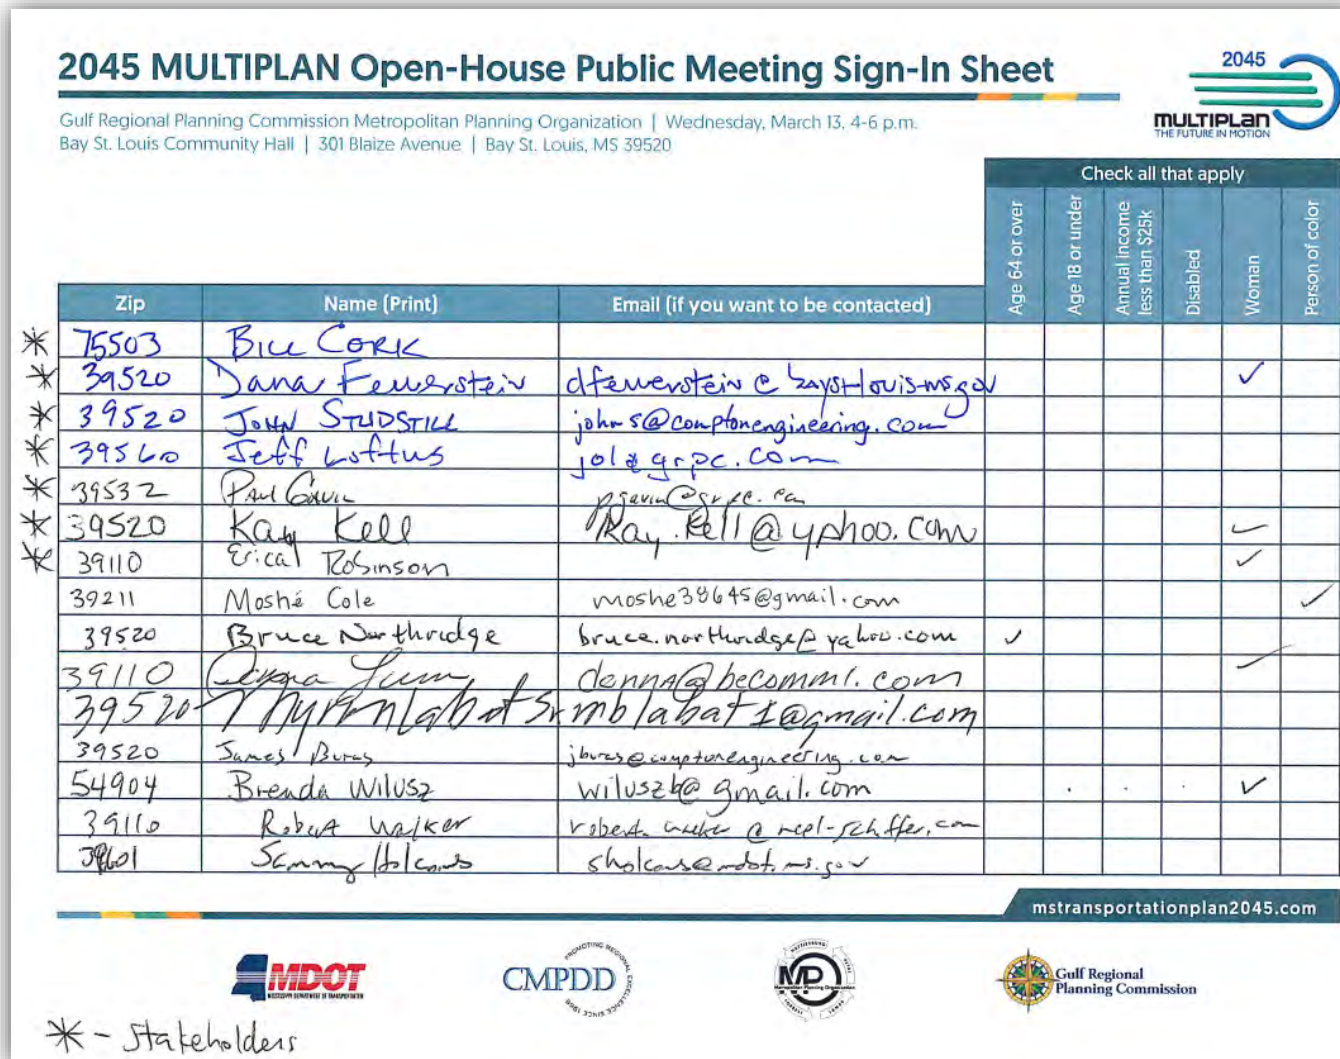 2045 MULTIPLAN Open-House Public Meeting Sign-In Sheet
2045
MULTIPLAN
THE FUTURE IN MOTION
Gulf Regional Planning Commission Metropolitan Planning Organization | Wednesday, March 13, 4-6 p.m.
Bay St. Louis Community Hall | 301 Blaize Avenue | Bay St. Louis, MS 39520
Check all that apply
Zip Name (Print) Email (if you want to be contacted) Age 64 or over Age 18 or under Annual income less than $25k Disabled Woman Person of color
* 75503 BILL CORK
* 39520 Dana Feuerstein dfeuerstein@baystlouis-ms.gov ✓
* 39520 JOHN STUDSTILL johns@comptonengineering.com
* 39560 Jeff Loftus jol@grpc.com
* 39532 Paul Gavin pgavin@grpc.com
* 39520 Kay Kell Kay.Kell@yahoo.com ✓
* 39110 Erica Robinson ✓
39211 Moshé Cole moshe38645@gmail.com ✓
39520 Bruce Northridge bruce.northridge@yahoo.com ✓
39110 denna@becommi.com ✓
39520 mblabat1@gmail.com
39520 James Buras jburas@comptonengineering.com
54904 Brenda Wilusz wiluszb@gmail.com ✓
39110 Robert Walker robert.walker@neel-schaffer.com
39601 Sammy Holcomb @mdot.ms.gov
mstransportationplan2045.com
MDOT
MISSISSIPPI DEPARTMENT OF TRANSPORTATION
PROMOTING REGIONAL EXCELLENCE SINCE 1968
CMPDD
MPO
Metropolitan Planning Organization
Gulf Regional
Planning Commission
* - Stakeholders